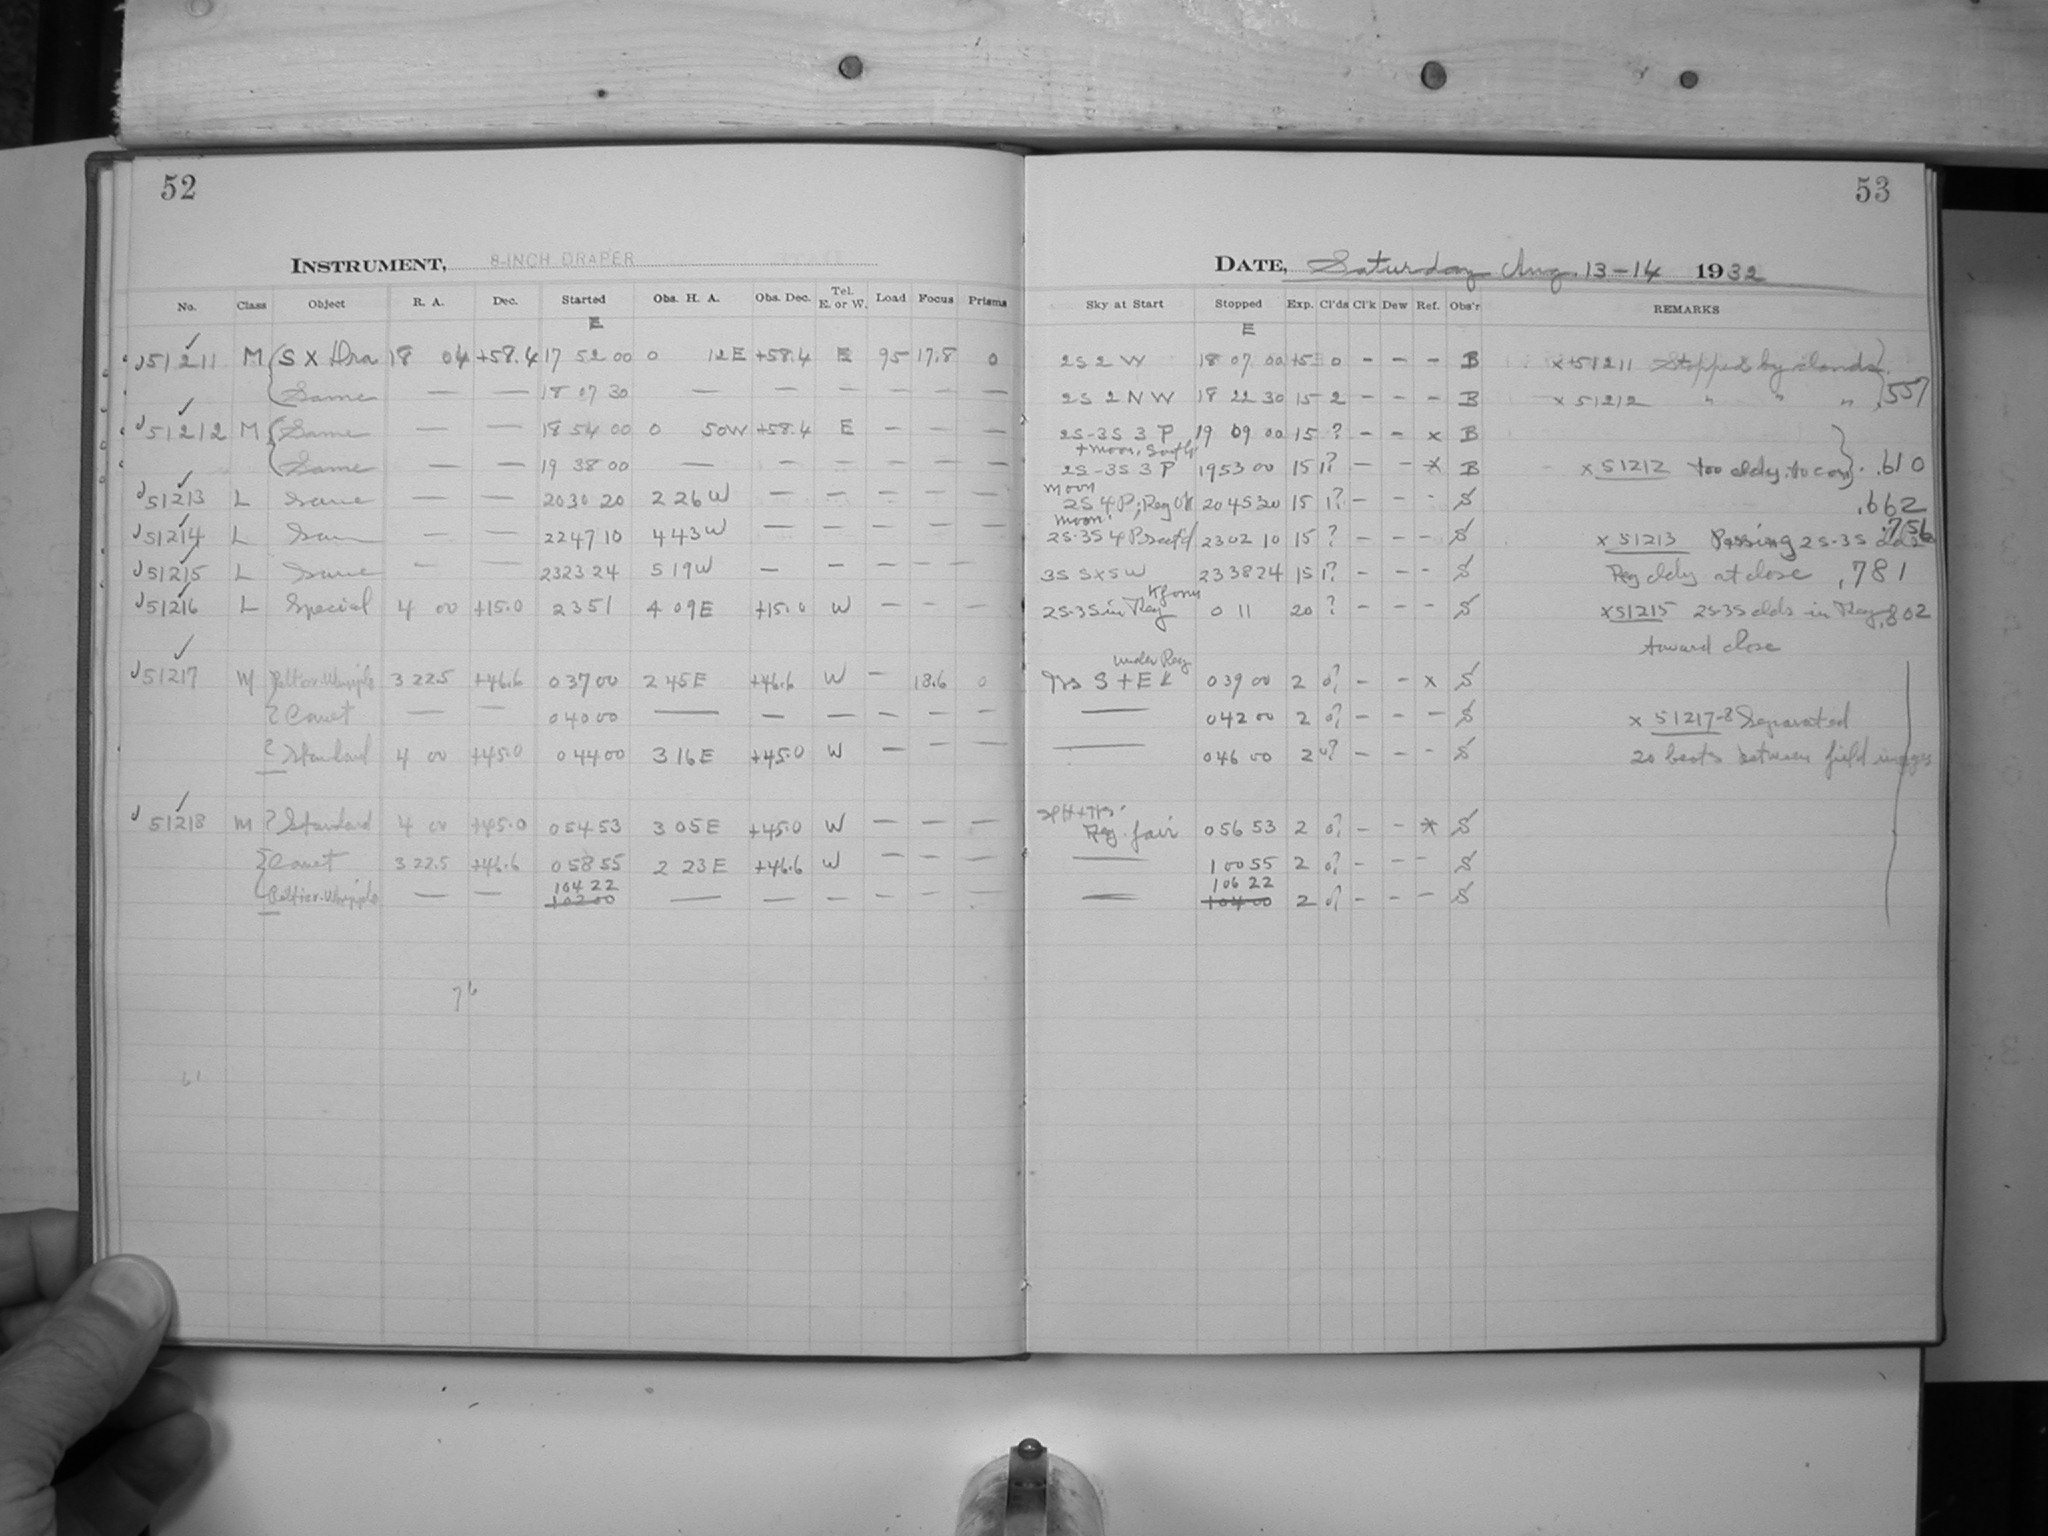 52
INSTRUMENT, 8-INCH DRAPER
No. Class Object R. A. Dec. Started Obs. H. A. Obs. Dec. Tel. E. or W. Load Focus Prisms
E
51211 M S X Dra 18 04 +58.4 17 52 00 0 12E +58.4 E 95 17.8 0
Same — — 18 07 30 — — — — — —
51212 M Same — — 18 54 00 0 50W +58.4 E — — —
Same — — 19 38 00 — — — — — —
51213 L Same — — 20 30 20 2 26W — — — — —
51214 L Same — — 22 47 10 4 43W — — — — —
51215 L Same — — 23 23 24 5 19W — — — — —
51216 L Special 4 00 +15.0 23 51 4 09E +15.0 W — — —
51217 M Peltier-Whipple 3 22.5 +46.6 0 37 00 2 45E +46.6 W — 18.6 0
Comet — — 0 40 00 — — — — — —
Standard 4 00 +45.0 0 44 00 3 16E +45.0 W — — —
51218 M Standard 4 00 +45.0 0 54 53 3 05E +45.0 W — — —
Comet 3 22.5 +46.6 0 58 55 2 23E +46.6 W — — —
1 04 22
Peltier-Whipple — — 1 02 00 — — — — — —
76
61
53
DATE, Saturday Aug. 13-14 1932
Sky at Start Stopped Exp. Cl'ds Cl'k Dew Ref. Obs'r REMARKS
E
2S 2 W 18 07 00 15 0 — — — B x 51211 Stopped by clouds.
2S 2 N W 18 22 30 15 2 — — — B x 51212 " " " .557
2S-3S 3 P 19 09 00 15 ? — — x B
+ moon, South
2S-3S 3 P 19 53 00 15 1? — — x B x 51212 too cldy. to con. .610
moon
2S 4 P; Reg OK 20 45 20 15 1? — — - S .662
moon .756
2S-3S 4 P 23 02 10 15 ? — — — S x 51213 Passing 2S-3S clds
3S S x S W 23 38 24 15 1? — — - S Reg cldy at close .781
2S-3S in Reg 0 11 20 ? — — - S x 51215 2S-3S clds in Reg .802
toward close
under Reg
S + E 0 39 00 2 0? — — x S
— 0 42 00 2 0? — — — S x 51217-8 Separated
— 0 46 00 2 0? — — — S 20 beats between field images
Reg. fair 0 56 53 2 0? — — x S
— 1 00 55 2 0? — — - S
1 06 22
— 1 04 00 2 0? — — — S